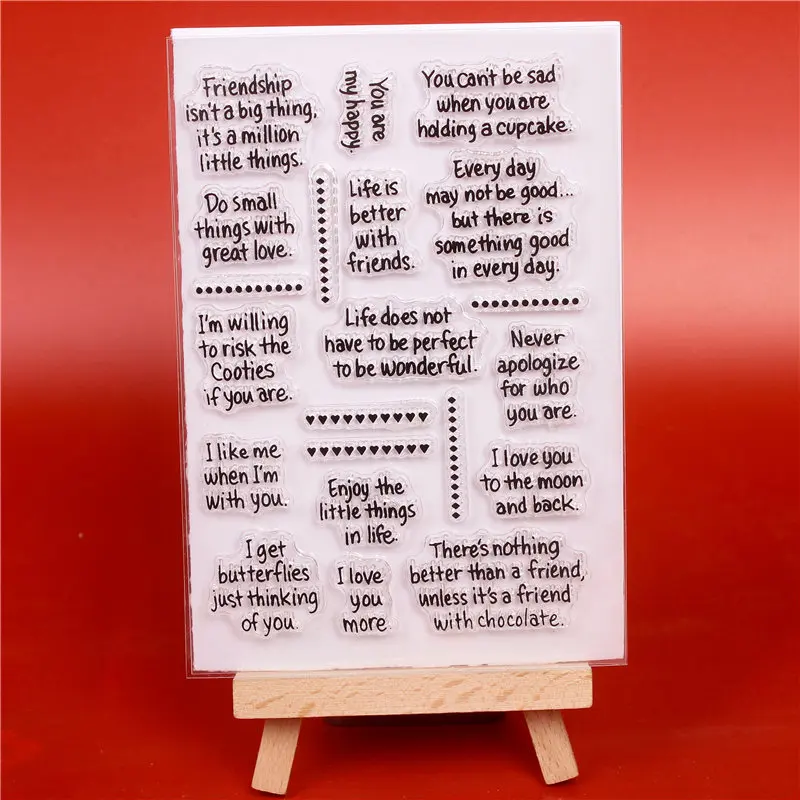 Friendship
isn't a big thing,
it's a million
little things.
You are
my happy.
You can't be sad
when you are
holding a cupcake.
Do small
things with
great love.
Life is
better
with
friends.
Every day
may not be good...
but there is
something good
in every day.
I'm willing
to risk the
Cooties
if you are.
Life does not
have to be perfect
to be wonderful.
Never
apologize
for who
you are.
I like me
when I'm
with you.
Enjoy the
little things
in life.
I love you
to the moon
and back.
I get
butterflies
just thinking
of you.
I love
you
more.
There's nothing
better than a friend,
unless it's a friend
with chocolate.